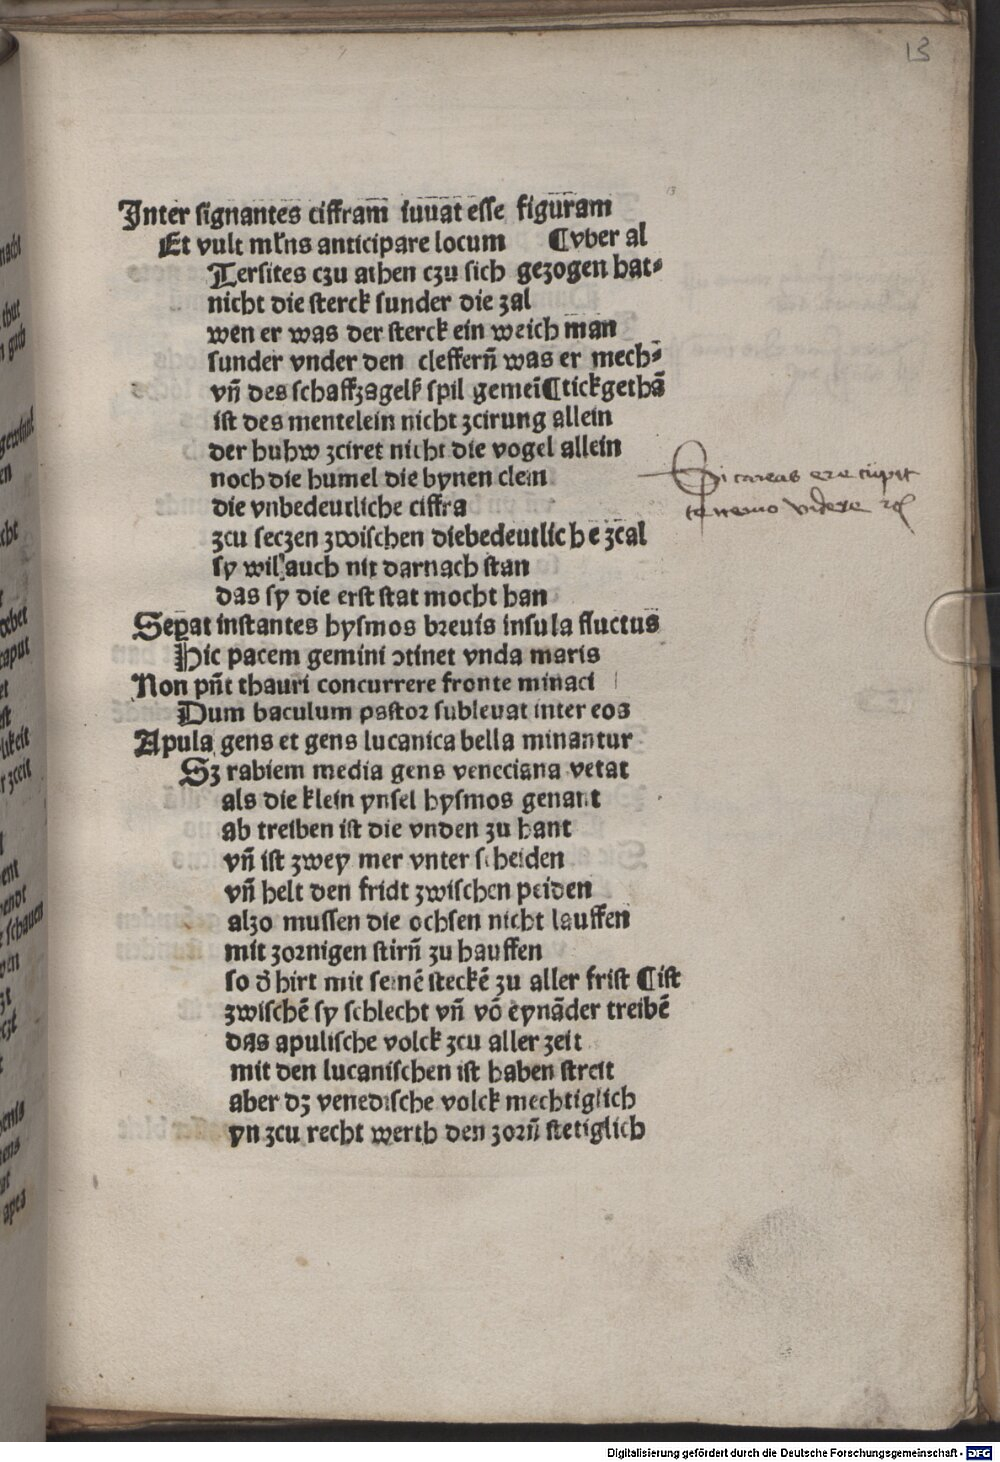 13
Inter signantes ciffram iuuat esse figuram
Et vult mĺns anticipare locum ¶vber al
Tersites czu athen czu sich gezogen hat⸗
nicht die sterck sunder die zal
wen er was der sterck ein weich man
sunder vnder den cleffern̄ was er mech⸗
vn̄ des schaffzagelß spil gemeī¶tickgethā
ist des mentelein nicht zcirung allein
der huhw zciret nicht die vogel allein
noch die humel die bynen clein
die vnbedeutliche ciffra
zcu seczen zwischen diebedeutliche zcal
sy wil auch nit darnach stan
das sy die erst stat mocht han
Sepat instantes hysmos breuis insula fluctus
Hic pacem gemini ↄtinet vnda maris
Non pn̄t thauri concurrere fronte minaci
Dum baculum pastor subleuat inter eos
Apula gens et gens lucanica bella minantur
Sz rabiem media gens veneciana vetat
als die klein ynsel hysmos genant
ab treiben ist die vnden zu hant
vn̄ ist zwey mer vnter scheiden
vn̄ helt den fridt zwischen peiden
alzo mussen die ochsen nicht lauffen
mit zornigen stirn̄ zu hauffen
so d̄ hirt mit seinē steckē zu aller frist ¶ist
zwischē sy schlecht vn̄ vō eynāder treibē
das apulische volck zcu aller zeit
mit den lucanischen ist haben streit
aber dz venedische volck mechtiglich
yn zcu recht werth den zorn̄ stetiglich
Si careas ere cupit
te nemo videre
Digitalisierung gefördert durch die Deutsche Forschungsgemeinschaft - DFG